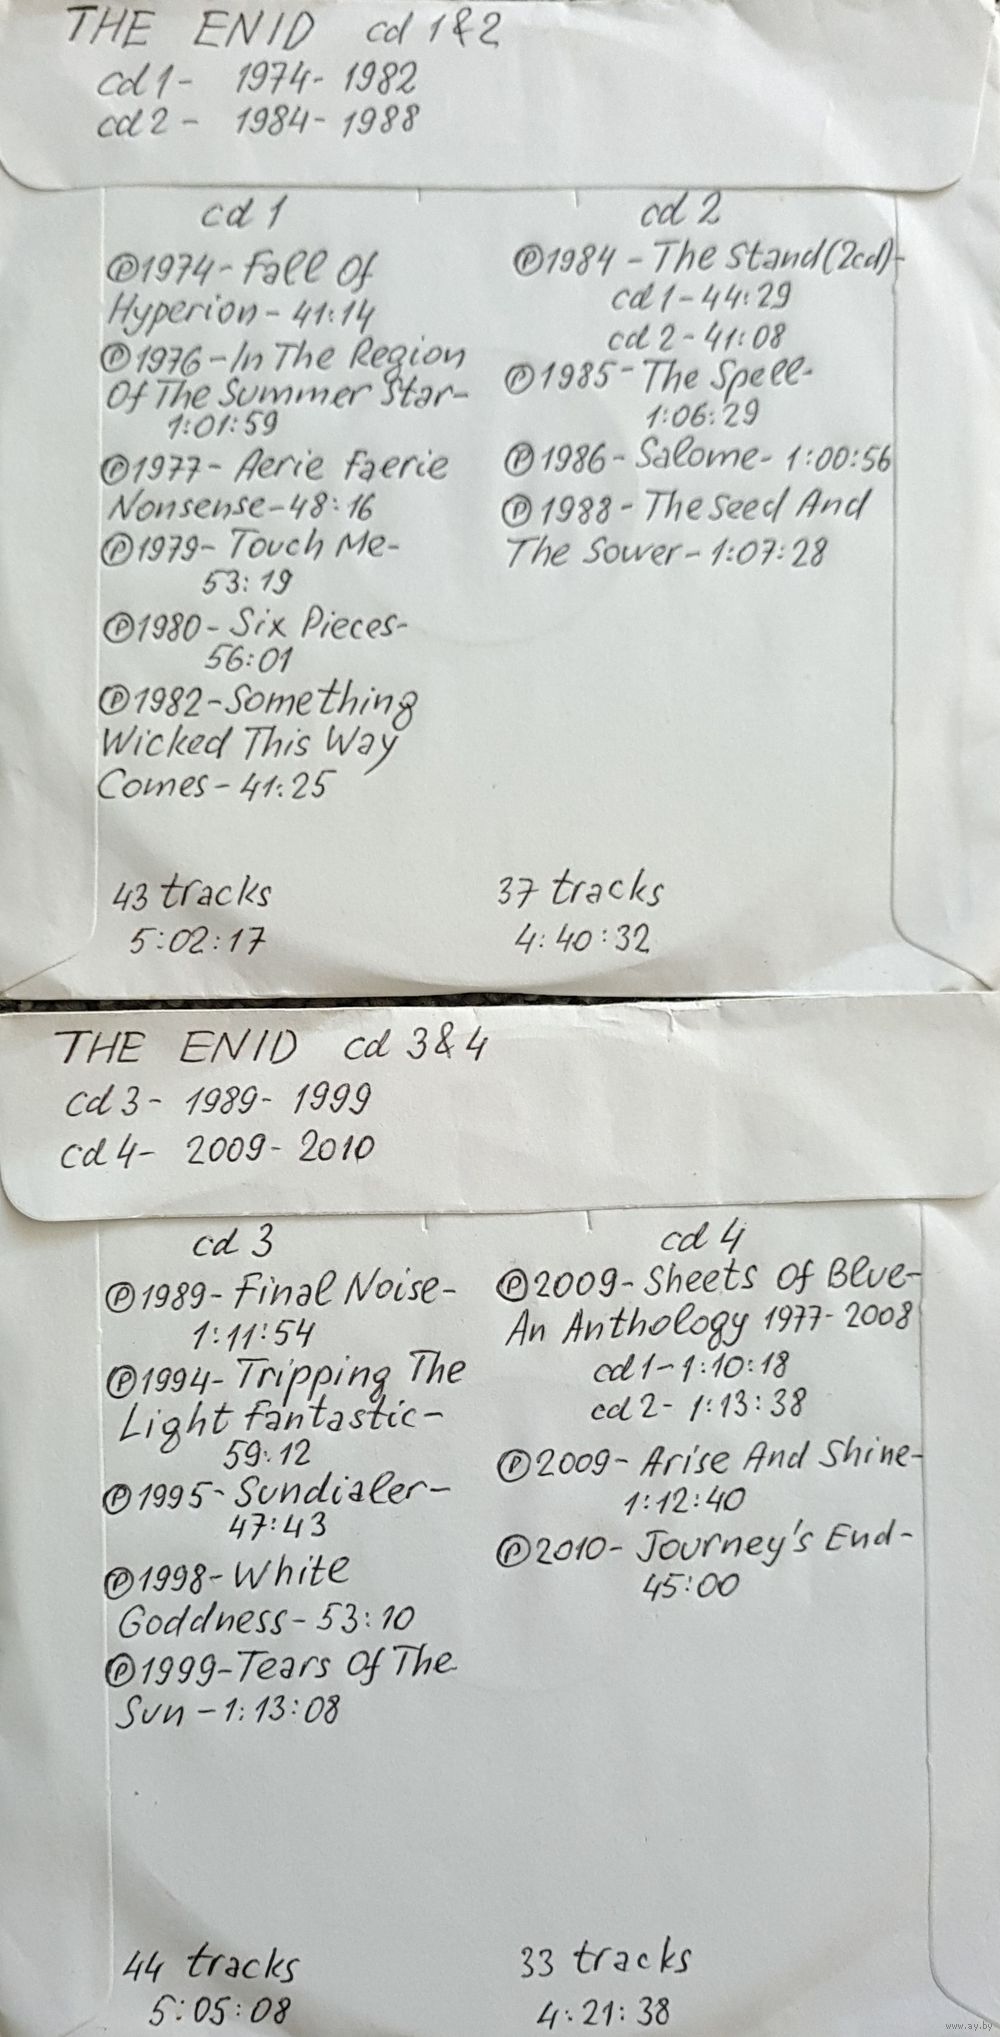 THE ENID cd 1&2
cd 1 - 1974 - 1982
cd 2 - 1984 - 1988
cd 1
Ⓟ1974 - Fall Of
Hyperion - 41:14
Ⓟ1976 - In The Region
Of The Summer Star -
1:01:59
Ⓟ1977 - Aerie Faerie
Nonsense - 48:16
Ⓟ1979 - Touch Me -
53:19
Ⓟ1980 - Six Pieces -
56:01
Ⓟ1982 - Something
Wicked This Way
Comes - 41:25
43 tracks
5:02:17
cd 2
Ⓟ1984 - The Stand (2cd) -
cd 1 - 44:29
cd 2 - 41:08
Ⓟ1985 - The Spell -
1:06:29
Ⓟ1986 - Salome - 1:00:56
Ⓟ1988 - The Seed And
The Sower - 1:07:28
37 tracks
4:40:32
THE ENID cd 3&4
cd 3 - 1989 - 1999
cd 4 - 2009 - 2010
cd 3
Ⓟ1989 - Final Noise -
1:11:54
Ⓟ1994 - Tripping The
Light Fantastic -
59:12
Ⓟ1995 - Sundialer -
47:43
Ⓟ1998 - White
Goddness - 53:10
Ⓟ1999 - Tears Of The
Sun - 1:13:08
44 tracks
5:05:08
cd 4
Ⓟ2009 - Sheets Of Blue -
An Anthology 1977 - 2008
cd 1 - 1:10:18
cd 2 - 1:13:38
Ⓟ2009 - Arise And Shine -
1:12:40
Ⓟ2010 - Journey's End -
45:00
33 tracks
4:21:38
www.ay.by